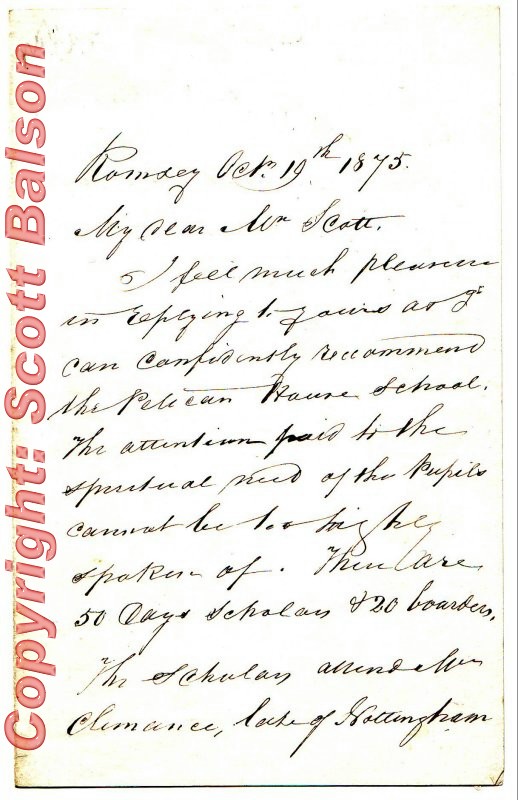 Copyright: Scott Balson
Romsey Octr. 19th 1875.
My dear Mr Scott.
I feel much pleasure
in replying to yours as I
can confidently recommend
the Pelican House School.
The attention paid to the
spiritual need of the Pupils
cannot be too highly
spoken of. There are
50 Days scholars & 20 boarders.
The Scholars attend
Clemance, late of Nottingham